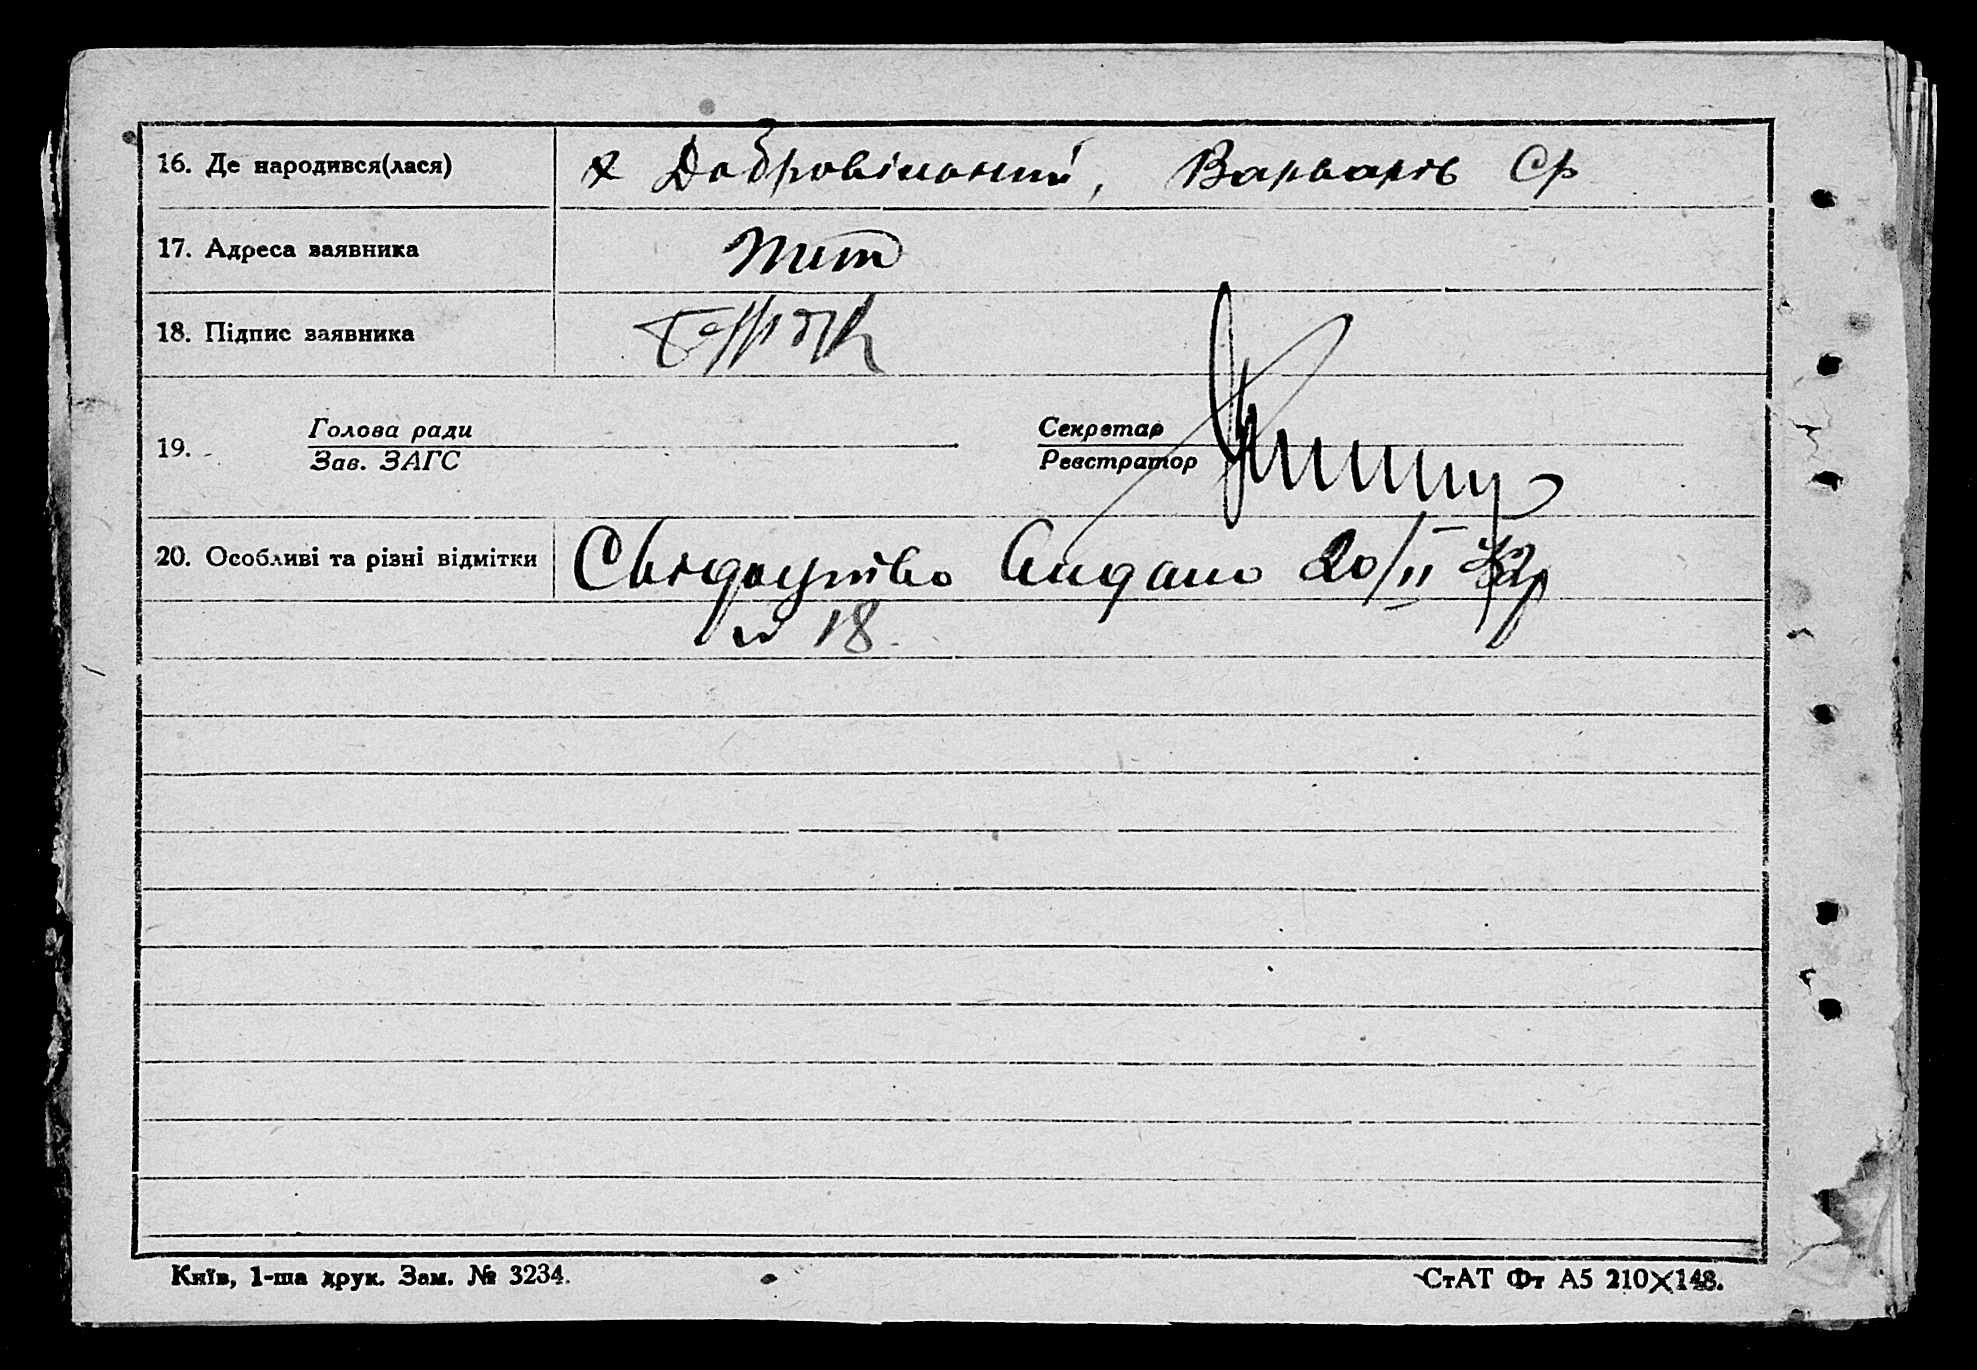 16. Де народився(лася) х Добровільний, Варварів Ср
17. Адреса заявника
18. Підпис заявника
19. Голова ради Секретар
Зав. ЗАГС Реєстратор
20. Особливі та різні відмітки Свідоцтво видано 20/II
№ 18
Київ, 1-ша друк. Зам. № 3234.
СтАТ Фт А5 210×148.